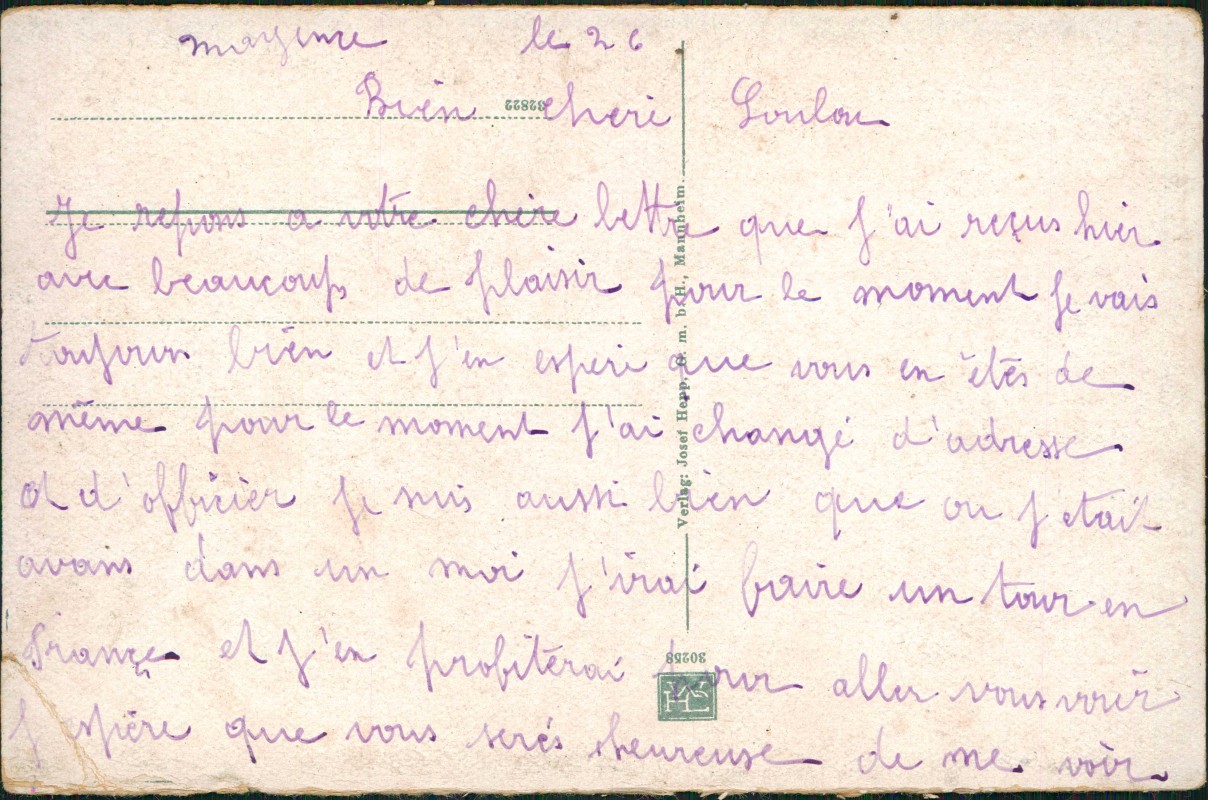 mayence le 26
Bien cheri Loulou
Je repons a votre chère lettre que j'ai reçus hier
avec beaucoup de plaisir pour le moment je vais
toujours bien et j'en esperé que vous en êtés de
même pour le moment j'ai changé d'adresse
et d'officier je suis aussi bien que ou j'etait
avans dans un moi j'irai faire un tour en
Françe et j'en profiterai pour aller vous voir
j'espère que vous serés heureuse de me voir
32822
Verlag: Josef Hepp, G. m. b. H., Mannheim.
30258